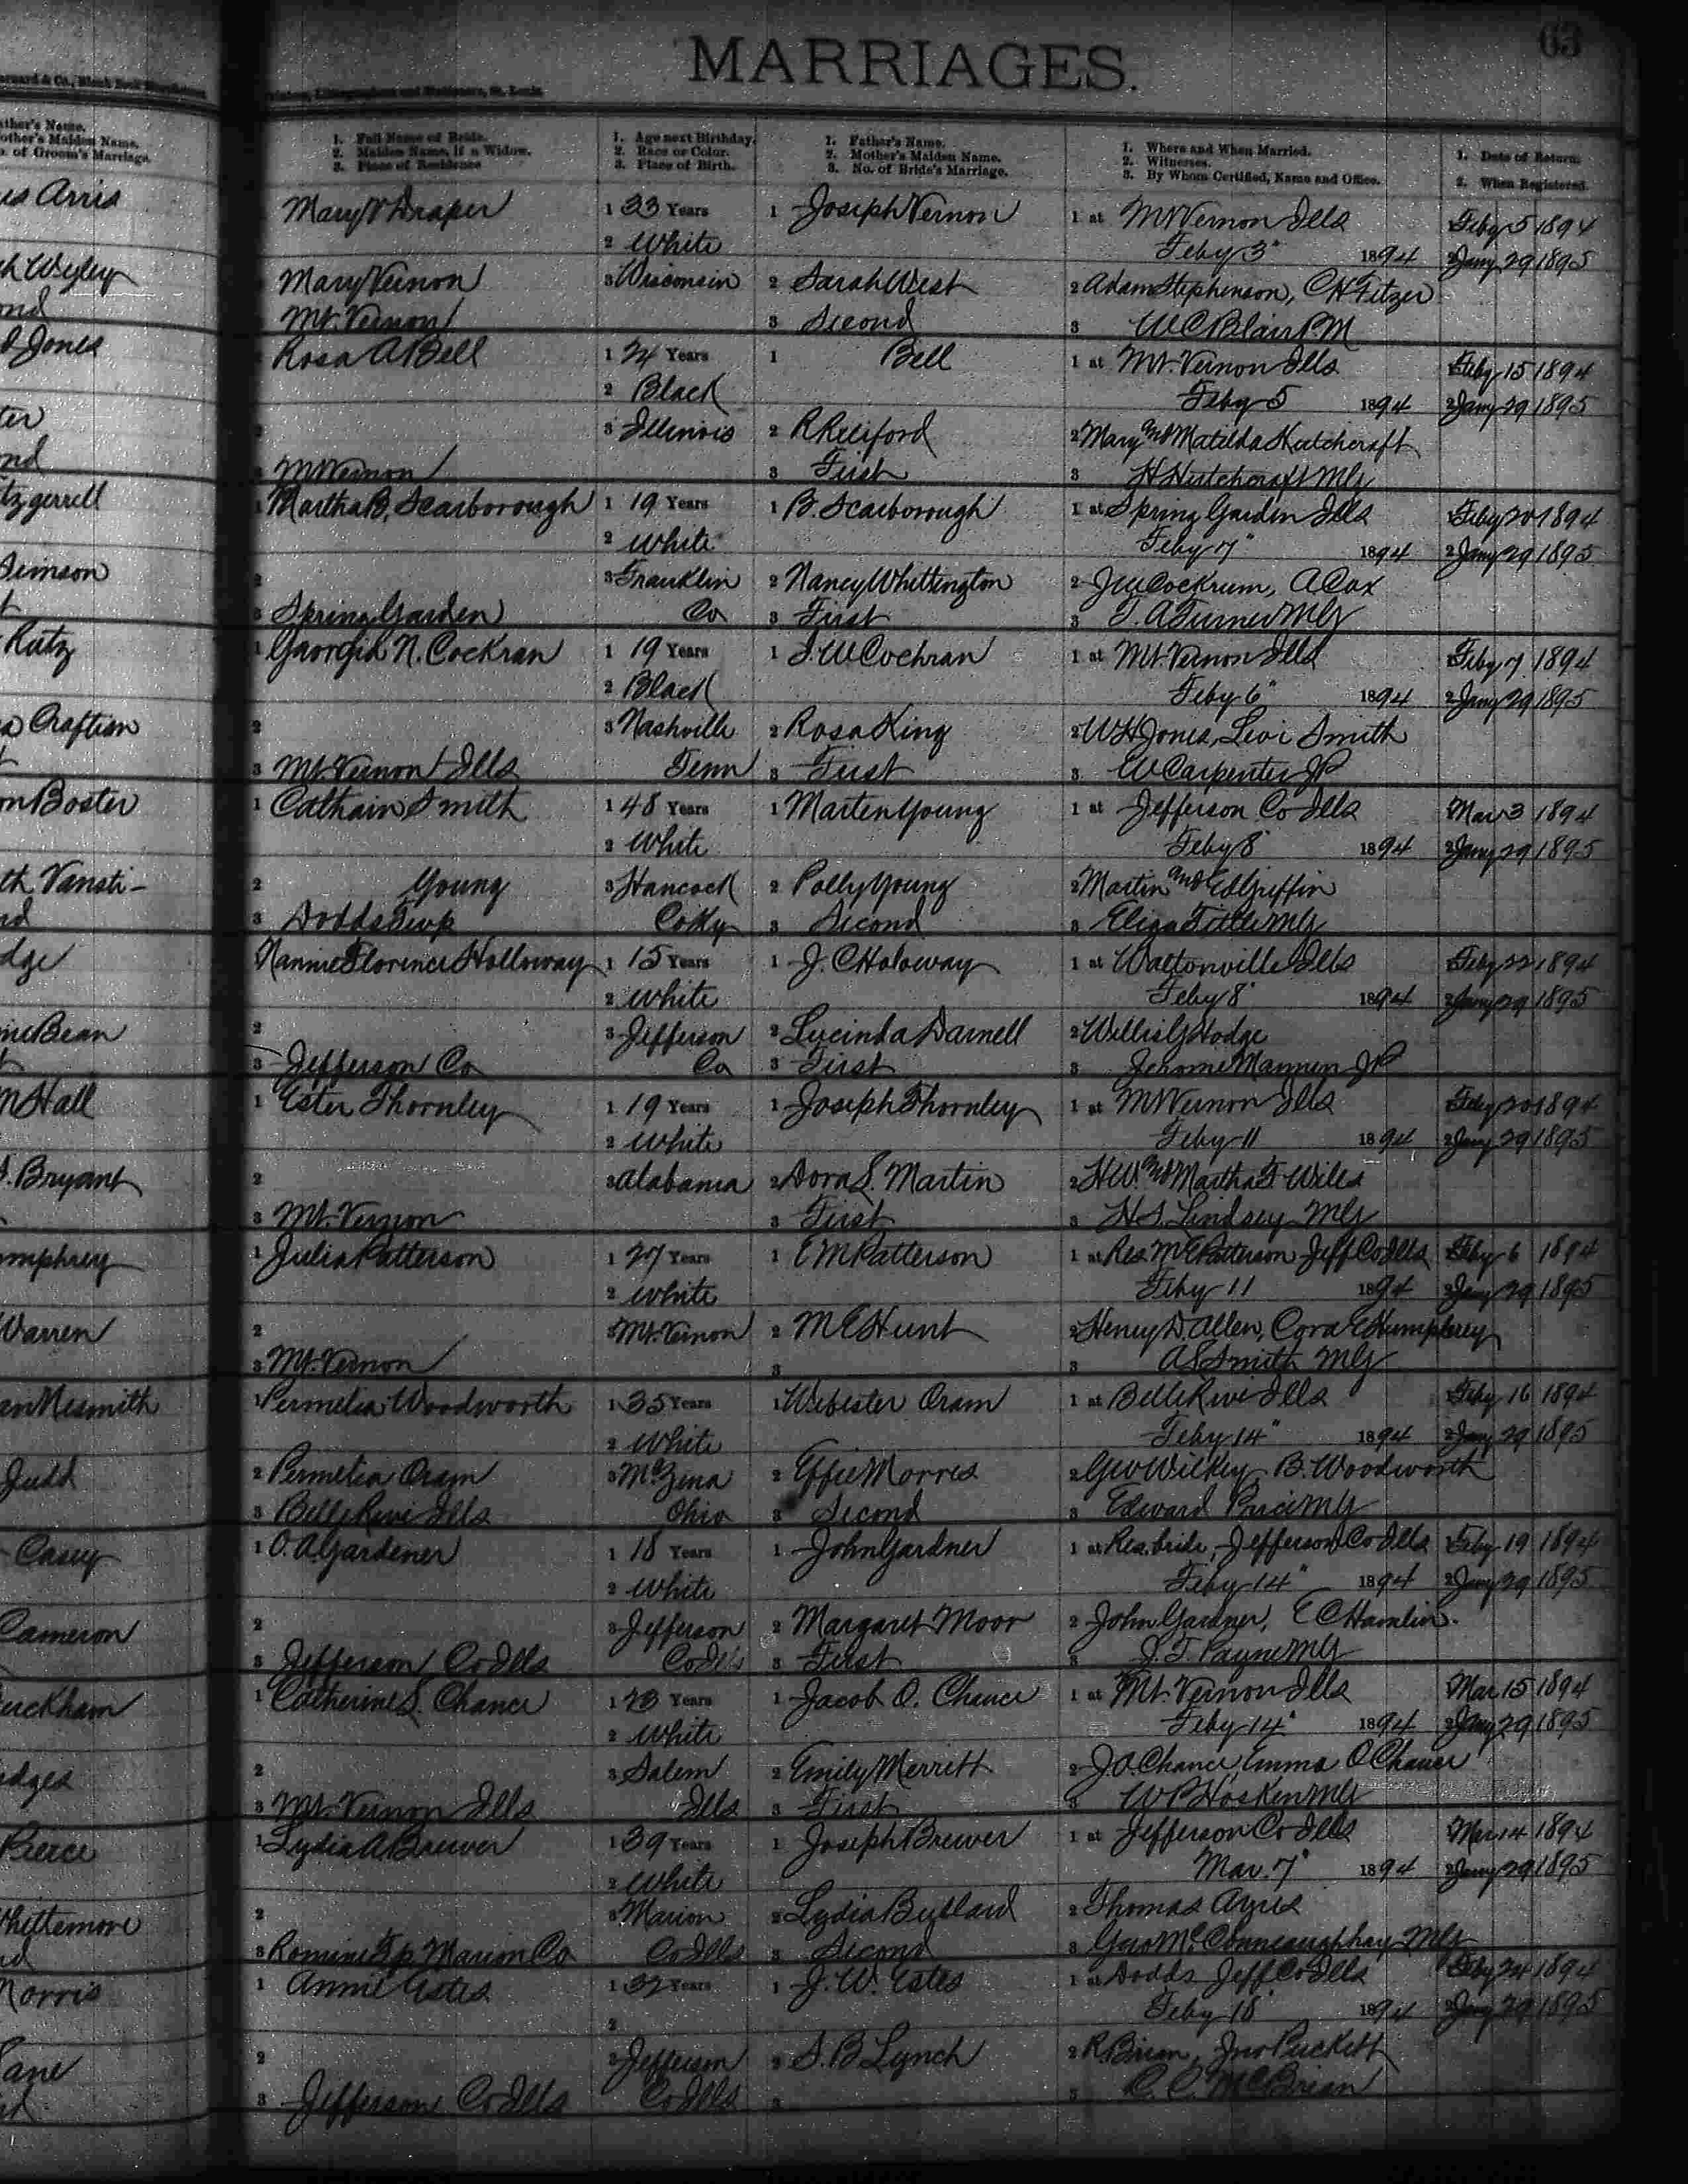 MARRIAGES.
63
ther's Name.
other's Maiden Name.
o. of Groom's Marriage.
1. Full Name of Bride.
2. Maiden Name, if a Widow.
3. Place of Residence
1. Age next Birthday.
2. Race or Color.
3. Place of Birth.
1. Father's Name.
2. Mother's Maiden Name.
3. No. of Bride's Marriage.
1. Where and When Married.
2. Witnesses.
3. By Whom Certified, Name and Office.
1. Date of Return.
2. When Registered.
Mary V Draper 1 33 Years 1 Joseph Vernon 1 at Mt Vernon Ills Feby 5 1894
2 White Feby 3" 1894 2 Jany 29 1895
Mary Vernon 3 Wisconsin 2 Sarah West 2 Adam Stephenson, C H Fitzer
Mt. Vernon 3 Second 3 W C Blair PM
Rosa A Bell 1 24 Years 1 Bell 1 at Mt. Vernon Ills Feby 15 1894
2 Black Feby 5 1894 2 Jany 29 1895
2 3 Illinois 2 R Reliford 2 Mary and Matilda Hutchcraft
3 Mt Vernon 3 First 3 H Hutchcraft MG
1 Martha B. Scarborough 1 19 Years 1 B. Scarborough 1 at Spring Garden Ills Feby 20 1894
2 White Feby 7" 1894 2 Jany 29 1895
2 3 Franklin 2 Nancy Whittington 2 J W Cockrum, A Cox
3 Spring Garden Co 3 First 3 T. A Turner MG
1 Georgia N. Cockran 1 19 Years 1 J. W Cochran 1 at Mt. Vernon Ills Feby 7 1894
2 Black Feby 6" 1894 2 Jany 29 1895
2 3 Nashville 2 Rosa King 2 W H Jones, Levi Smith
3 Mt. Vernon Ills Tenn 3 First 3 W Carpenter JP
1 Cathain Smith 1 48 Years 1 Marten Young 1 at Jefferson Co Ills Mar 3 1894
2 White Feby 8" 1894 2 Jany 29 1895
2 Young 3 Hancock 2 Polly Young 2 Martin and Ed Griffin
3 Dodds Twp Co Ky 3 Second 3 Eliza Tittle MG
Nannie Florence Holloway 1 15 Years 1 J. C Holoway 1 at Waltonville Ills Feby 22 1894
2 White Feby 8" 1894 2 Jany 29 1895
2 3 Jefferson 2 Lucinda Darnell 2 Willis G Hodge
3 Jefferson Co Co 3 First 3 Jehome Mannen JP
1 Ester Thornley 1 19 Years 1 Joseph Thornley 1 at Mt Vernon Ills Feby 20 1894
2 White Feby 11 1894 2 Jany 29 1895
2 3 Alabama 2 Dora S. Martin 2 H W. and Martha F Wiles
3 Mt. Vernon 3 First 3 H S. Lindsey MG
1 Julia Patterson 1 27 Years 1 E M Patterson 1 at Res M E Patterson Jeff Co Ills Feby 6 1894
2 White Feby 11 1894 2 Jany 29 1895
2 3 Mt. Vernon 2 M E Hunt 2 Henry D. Allen, Cora E Humphrey
3 Mt. Vernon 3 3 A S Smith MG
1 Permelia Woodworth 1 35 Years 1 Webester Oram 1 at Belle Rive Ills Feby 16 1894
2 White Feby 14" 1894 2 Jany 29 1895
2 Permelia Oram 3 McZena 2 Effie Morres 2 Geo Wilkey, B. Woodworth
3 Belle Rive Ills Ohio 3 Second 3 Edward Price MG
1 O. A. Gardener 1 18 Years 1 John Gardner 1 at Res. bride, Jefferson Co Ills Feby 19 1894
2 White Feby 14" 1894 2 Jany 29 1895
2 3 Jefferson 2 Margaret Moor 2 John Gardner, E C Hamlin.
3 Jefferson Co Ills Co Ills 3 First 3 J. T. Payne MG
1 Catherine S. Chance 1 23 Years 1 Jacob O. Chance 1 at Mt. Vernon Ills Mar 15 1894
2 White Feby 14" 1894 2 Jany 29 1895
2 3 Salem 2 Emily Merritt 2 J. O. Chance, Emma O Chance
3 Mt. Vernon Ills Ills 3 First 3 W P Hosken MG
1 Lydia A Brewer 1 39 Years 1 Joseph Brewer 1 at Jefferson Co Ills Mar 14 1894
2 White Mar. 7" 1894 2 Jany 29 1895
2 3 Marion 2 Lydia Bullard 2 Thomas Ayres
3 Romine Tp. Marion Co Co Ills 3 Second 3 Geo McConneaughhay MG
1 Annie Estes 1 32 Years 1 J. W. Estes 1 at Dodds Jeff Co Ills Feby 24 1894
2 Feby 18 1894 2 Jany 29 1895
2 3 Jefferson 2 S. B Lynch 2 R. Brian, Jno Puckett
3 Jefferson Co Ills Co Ills 3 3 R. C. McBrian